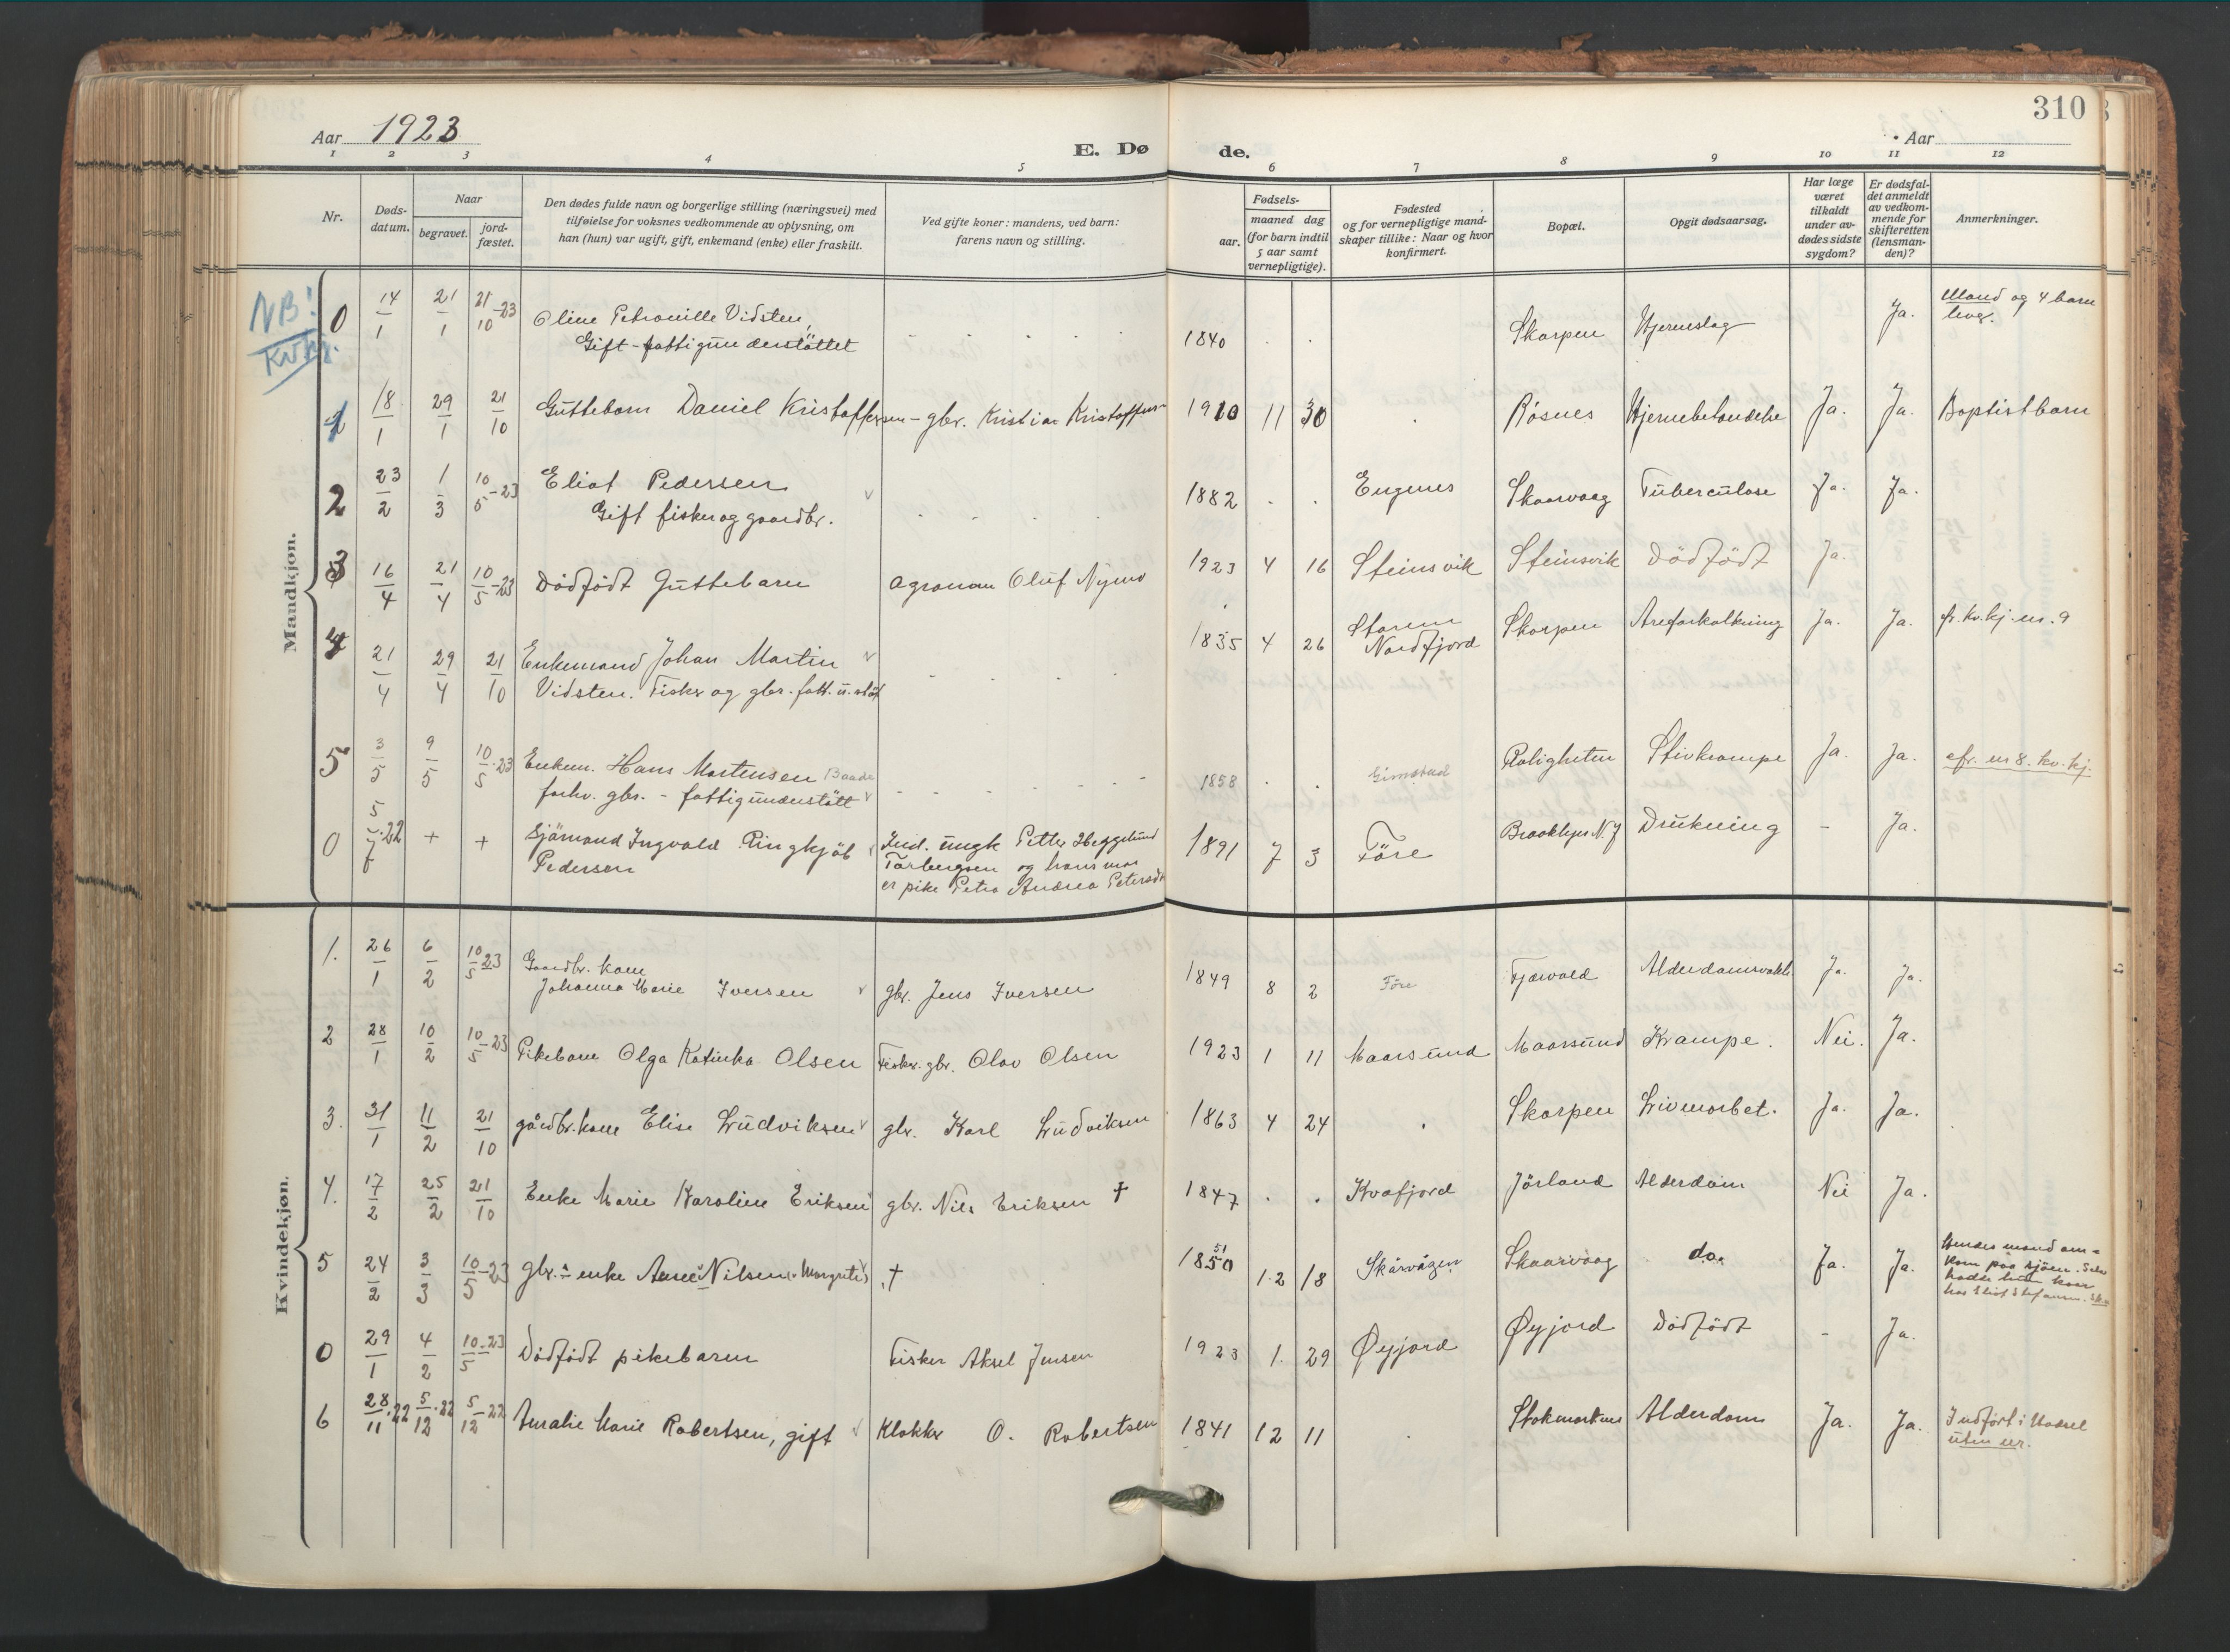 Aar 1923
E. Dø
de.
310
Aar
1 2 3 4 5 6 7 8 9 10 11 12
Nr.
Døds-
datum.
Naar
begravet.
jord-
fæstet.
Den dødes fulde navn og borgerlige stilling (næringsvei) med
tilføielse for voksnes vedkommende av oplysning, om
han (hun) var ugift, gift, enkemand (enke) eller fraskilt.
Ved gifte koner: mandens, ved barn:
farens navn og stilling.
Fødsels-
aar.
maaned dag
(for barn indtil
5 aar samt
vernepligtige).
Fødested
og for vernepligtige mand-
skaper tillike: Naar og hvor
konfirmert.
Bopæl.
Opgit dødsaarsag.
Har læge
været
tilkaldt
under av-
dødes sidste
sygdom?
Er dødsfal-
det anmeldt
av vedkom-
mende for
skifteretten
(lensman-
den)?
Anmerkninger.
Mandkjøn.
NB!
0 14/1 21/1 21/10-23 Oline Petronille Vidsten, 1840 Skorpen Hjerneslag Ja. Mand og 4 barn
Gift - fattigunderstöttet lever.
1 18/1 29/1 21/10 Guttebarn Daniel Kristoffersen - gbr. Kristian Kristoffersen 1910 11 30 Røsnes Hjernebetændelse Ja. Ja. Baptistbarn
2 23/2 1/3 10/5-23 Eliot Pedersen 1882 Engenes Skaarvaag Tuberculose Ja. Ja.
Gift fisker og gaardbr.
3 16/4 21/4 10/5-23 Dödfödt Guttebarn Agronom Oluf Nymo 1923 4 16 Steinsvik Steinsvik Dödfödt Ja.
4 21/4 29/4 21/10 Enkemand Johan Martin 1835 4 26 Nordfjord Skorpen Areforkalkning Ja. Ja. cfr. kv.kj. nr. 9
Vidsten. Fisker og gbr. fatt. u. stöt
5 3/5 9/5 10/5-23 Enkem. Hans Mortensen Baade 1858 Gimstad Roligheten Stivkrampe Ja. Ja. cfr. nr 8. kv. kj.
forhv. gbr. - fattigunderstött
0 5/7-22 + + Sjömand Ingvald Ringkjöb Ind. ungk Petter Heggelund 1891 7 3 Före Brooklyn N.J Drukning - Ja.
Pedersen Torbergsen og hans mor
er pike Petra Andrea Petersdt
Kvindekjøn.
1. 26/1 6/2 10/5 23 Gaardbr. kone
Johanna Marie Iversen gbr. Jens Iversen 1849 8 2 Före Fjærvold Alderdomsvakk. Ja. Ja.
2 28/1 10/2 10/5-23 Pikebarn Olga Katinka Olsen Fisker. gbr. Olav Olsen 1923 1 11 Maarsund Maarsund Krampe. Nei. Ja.
3. 31/1 11/2 21/10 gårdbr. kone Elise Ludviksen gbr. Karl Ludviksen 1863 4 24 Skorpen Livmorbet. Ja. Ja.
4. 17/2 25/2 21/10 Enke Marie Karoline Eriksen gbr. Nils Eriksen † 1847 Kvæfjord Jörland Alderdom Nei Ja.
5 24/2 3/3 10/5-23 gbr.- enke Anne Nilsen (Margrete) † 1850 51 12 18 Skårvågen Skaarvaag do. Ja. Ja. Hendes mand om-
kom paa sjöen. Selv
hadde hun
hos Eliot
0 29/1 4/2 10/5-23 Dödfödt pikebarn Fisker Aksel Jensen 1923 1. 29 Øyjord Øyjord Dödfödt - Ja.
6 28/11-22 5/12-22 5/12-22 Amalie Marie Robertsen, gift Klokker O. Robertsen 1841 12 11 Stokmarknes Alderdom Ja. Ja. Indfört i Hadsel
uten nr.